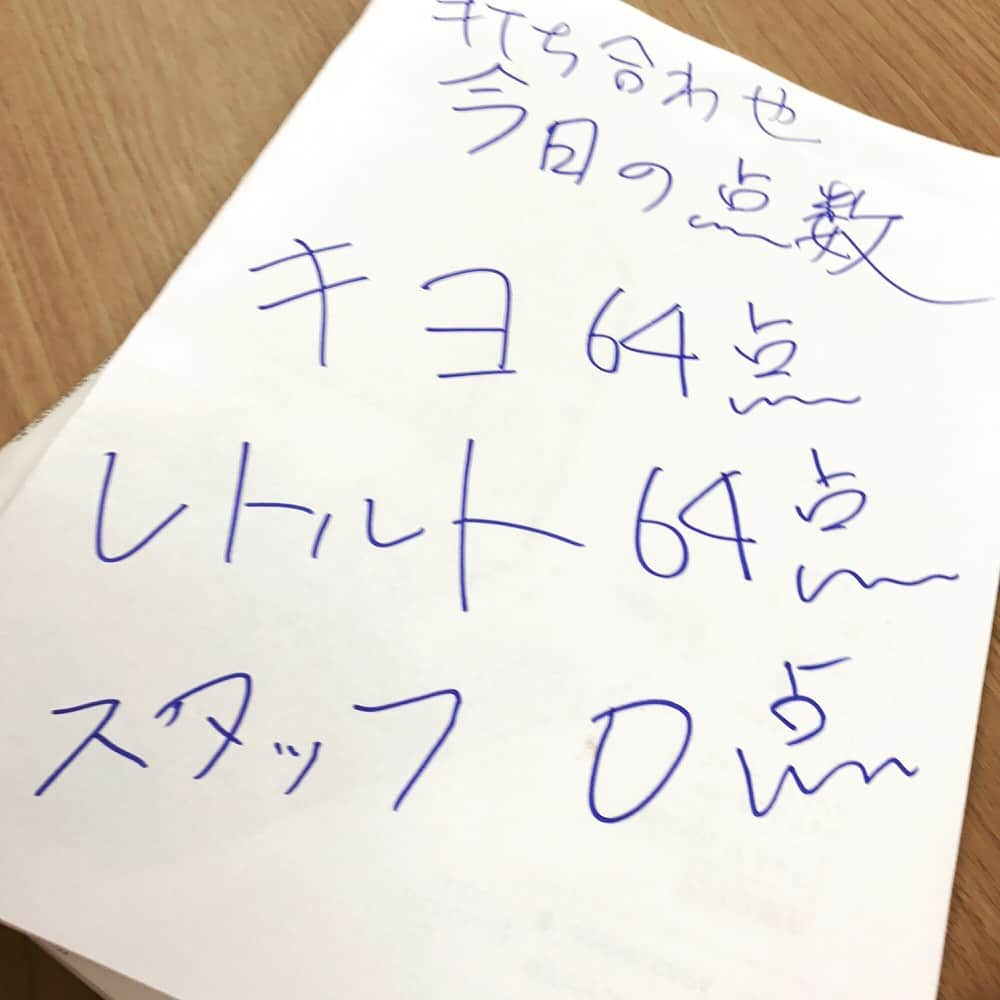 打ち合わせ
今日の点数
キヨ 64点
レトルト 64点
スタッフ 0点